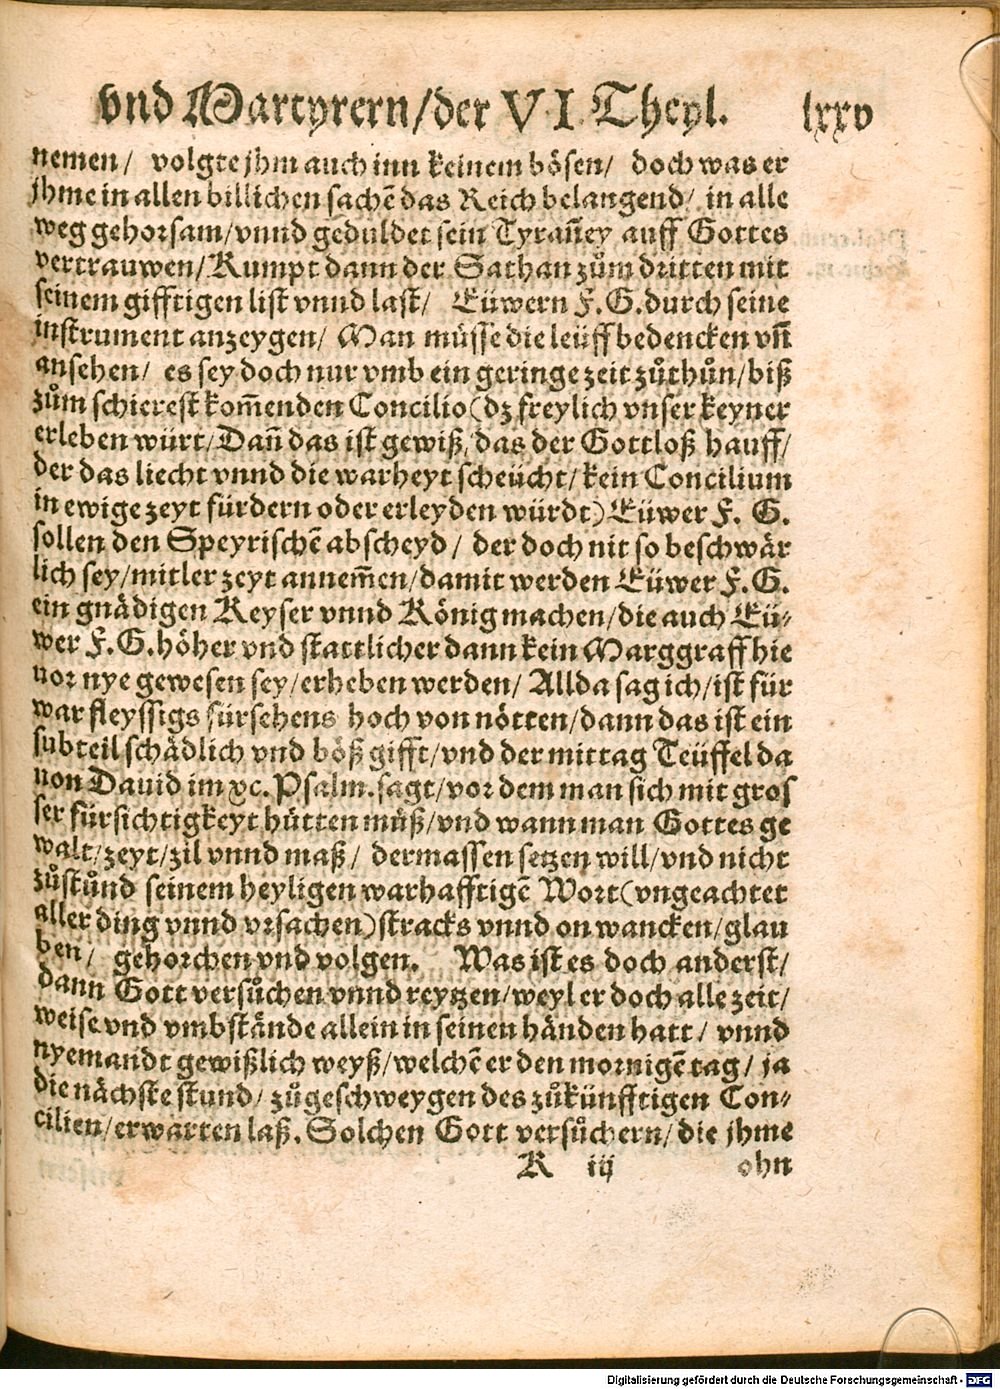 vnd Martyrern/der VI. Theyl. lxxv
nemen/ volgte jhm auch inn keinem bösen/ doch was er
jhme in allen billichen sachẽ das Reich belangend/ in alle
weg gehorsam/vnnd geduldet sein Tyrañey auff Gottes
vertrauwen/Kumpt dann der Sathan zům dritten mit
seinem gifftigen list vnnd last/ Eüwern F.G.durch seine
instrument anzeygen/ Man müsse die leüff bedencken vñ
ansehen/ es sey doch nur vmb ein geringe zeit zůthůn/biß
zům schierest kom̃enden Concilio(dz freylich vnser keyner
erleben würt/Dañ das ist gewiß/das der Gottloß hauff/
der das liecht vnnd die warheyt scheücht/kein Concilium
in ewige zeyt fürdern oder erleyden würdt)Eüwer F. G.
sollen den Speyrischẽ abscheyd/ der doch nit so beschwär
lich sey/mitler zeyt annem̃en/damit werden Eüwer F.G.
ein gnädigen Keyser vnnd König machen/die auch Eü-
wer F.G.höher vnd stattlicher dann kein Marggraff hie
uor nye gewesen sey/erheben werden/ Allda sag ich/ist für
war fleyssigs fürsehens hoch von nötten/dann das ist ein
subteil schädlich vnd böß gifft/vnd der mittag Teüffel da
uon Dauid im xc.Psalm.sagt/vor dem man sich mit gros
ser fürsichtigkeyt hütten můß/vnd wann man Gottes ge
walt/zeyt/zil vnnd maß/ dermassen setzen will/vnd nicht
zůstůnd seinem heyligen warhafftigẽ Wort(vngeachtet
aller ding vnnd vrsachen)stracks vnnd on wancken/glau
ben/ gehorchen vnd volgen. Was ist es doch anderst/
dann Gott versůchen vnnd reytzen/weyl er doch alle zeit/
weise vnd vmbstände allein in seinen händen hatt/ vnnd
nyemandt gewißlich weyß/welchẽ er den mornigẽ tag/ ja
die nächste stund/ zůgeschweygen des zůkünfftigen Con-
cilien/erwarten laß. Solchen Gott versůchern/die jhme
K iij ohn
Digitalisierung gefördert durch die Deutsche Forschungsgemeinschaft - DFG